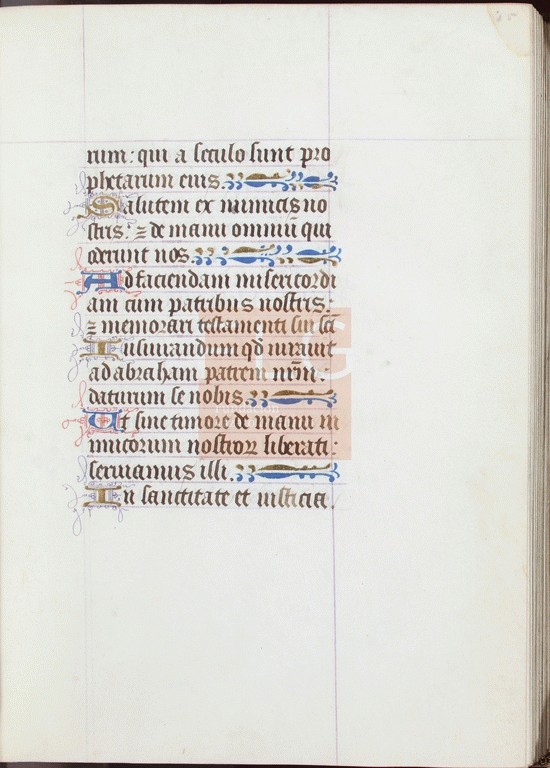 rum: qui a seculo sunt pro
phetarum eius.
Salutem ex inimicis no
stris: ⁊ de manu omniū qui
oderunt nos.
Ad faciendam misericordi
am cum patribus nostris:
⁊ memorari testamenti sui sc̄i
Iusiurandum qđ iurauit
ad abraham patrem nr̄m:
daturum se nobis.
Ut sine timore de manu in
imicorum nostroꝝ liberati:
seruiamus illi.
In sanctitate et iusticia